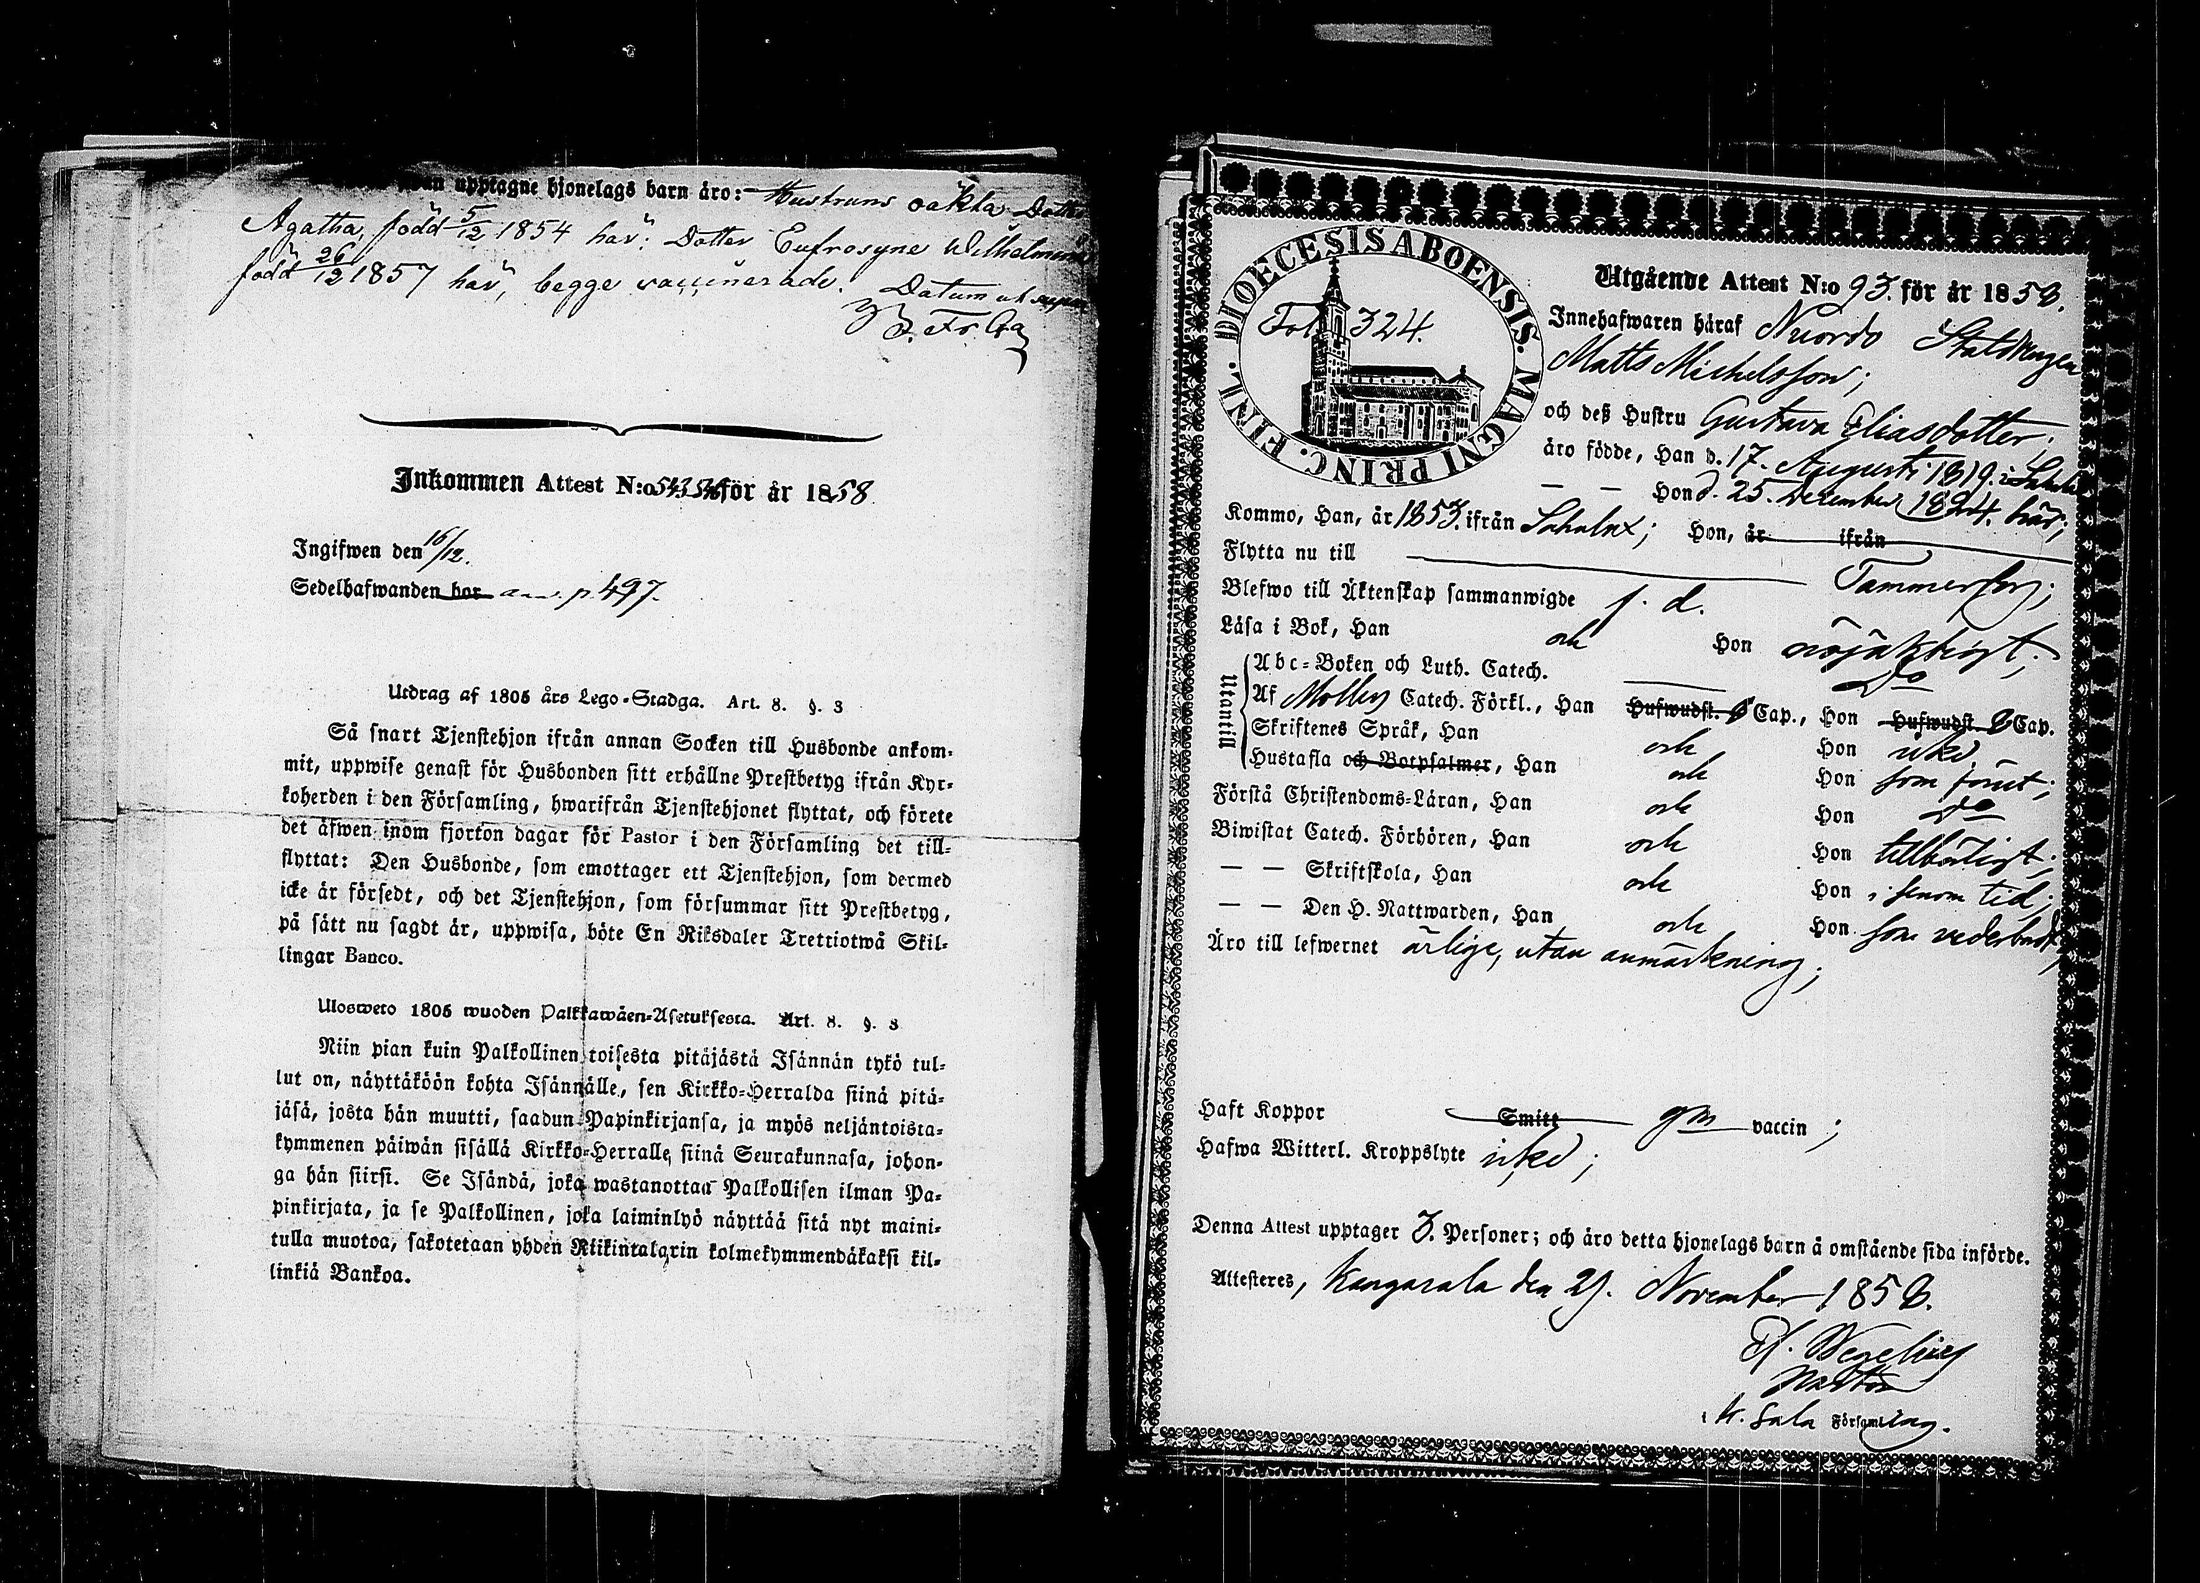 upptagne hjonelags barn äro: Hustruns oäkta Dotter
Agatha, född 5/12 1854 här: Dotter Eufrosyne Wilhelmina
född 26/12 1857 här, begge vaccinerade. Datum ut supra
Inkommen Attest N:o 543. för år 1858
Ingifwen den 16/12.
Sedelhafwanden bor p. 497.
Utdrag af 1805 års Lego-Stadga. Art. 8. §. 3
Så snart Tjenstehjon ifrån annan Socken till Husbonde ankom-
mit, uppwise genast för Husbonden sitt erhållne Prestbetyg ifrån Kyr-
koherden i den Församling, hwarifrån Tjenstehjonet flyttat, och förete
det äfwen inom fjorton dagar för Pastor i den Församling det till-
flyttat: Den Husbonde, som emottager ett Tjenstehjon, som dermed
icke är försedt, och det Tjenstehjon, som försummar sitt Prestbetyg,
på sätt nu sagdt är, uppwisa, böte En Riksdaler Trettiotwå Skil-
lingar Banco.
Ulosweto 1805 wuoden Palkkawäen-Asetuksesta. Art. 8. §. 3
Niin pian kuin Palkollinen toisesta pitäjästä Isännän tykö tul-
lut on, näyttäköön kohta Isännälle, sen Kirkko-Herralda siinä pitä-
jäsä, josta hän muutti, saadun Papinkirjansa, ja myös neljäntoista-
kymmenen päiwän sisällä Kirkko-Herralle siinä Seurakunnasa, johon-
ga hän siirsi. Se Isändä, joka wastanottaa Palkollisen ilman Pa-
pinkirjata, ja se Palkollinen, joka laiminlyö näyttää sitä nyt maini-
tulla muotoa, sakotetaan yhden Riikintalarin kolmekymmendäkaksi kil-
linkiä Bankoa.
DIOECESIS ABOENSIS. MAGNI PRINC. FINL.
Fol. 324.
Utgående Attest N:o 93. för år 1858.
Innehafwaren häraf Nuordo Stalldrengen
Matts Michelsson;
och deß Hustru Gustava Eliasdotter.
äro födde, Han d. 17. Augusti 1819. i
— — Hon d. 25. December 1824. här;
Kommo, Han, år 1853. ifrån Sahalax; Hon, år ifrån
Flytta nu till Tammerfors;
Blefwo till Äktenskap sammanwigde f. d.
Läsa i Bok, Han och Hon nöjaktigt;
Utantill
Abc-Boken och Luth. Catech. Do
Af Mollers Catech. Förkl., Han Hufwudst. 8 Cap., Hon Hufwudst. 8 Cap.
Skriftenes Språk, Han och Hon icke
Hustafla och Botpsalmer, Han och Hon som förut;
Förstå Christendoms-Läran, Han och Hon Do
Biwistat Catech. Förhören, Han och Hon tillbörligt;
— — Skriftskola, Han och Hon i sinom tid;
— — Den H. Nattwarden, Han och Hon som vederbordt;
Äro till lefwernet ärlige, utan anmärkning;
Haft Koppor Smitt gm vaccin;
Hafwa Witterl. Kroppslyte icke;
Denna Attest upptager 3. Personer; och äro detta hjonelags barn å omstående sida införde.
Attesteres, Kangasala den 29. November 1858.
Wegelius
Pastor
i K. sala Församling.